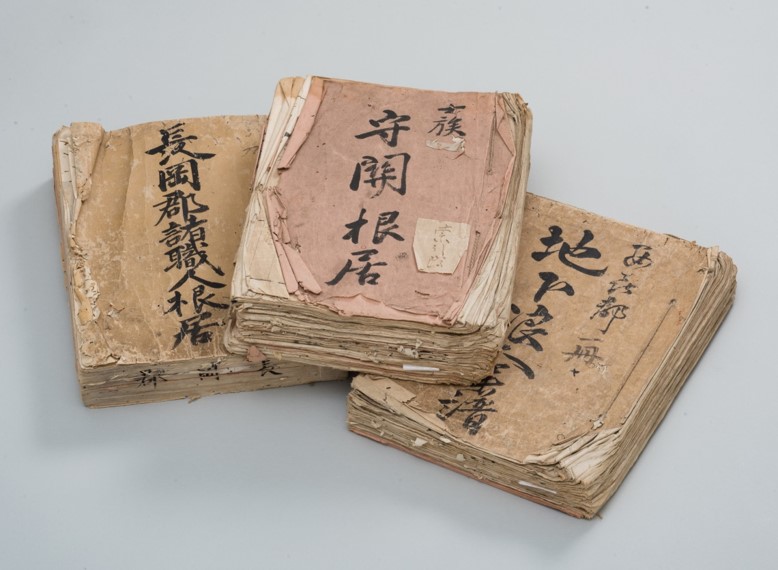 長岡郡諸職人根居
長岡郡
士族
守關根居
郡
一冊
地下浪人
譜